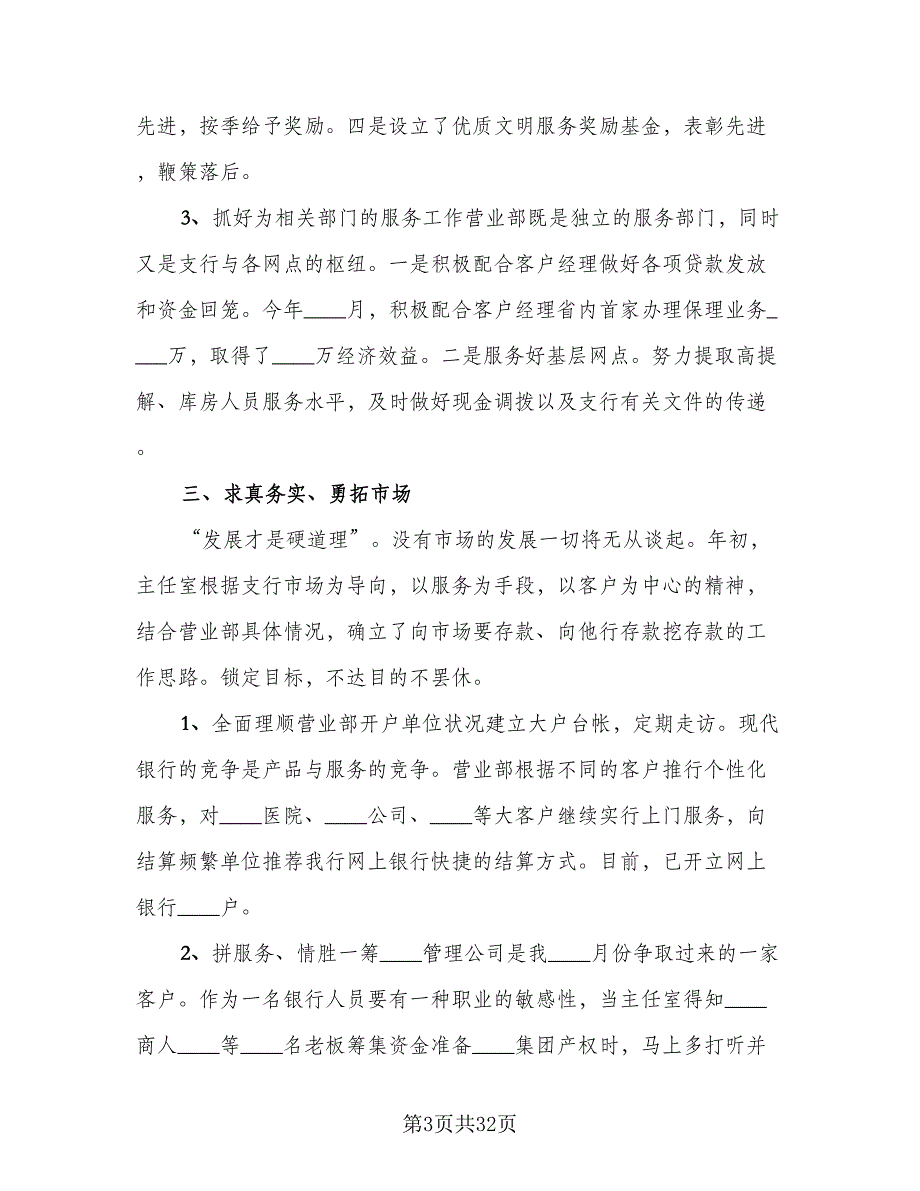 先进，按季给予奖励。四是设立了优质文明服务奖励基金，表彰先进
，鞭策落后。
3、抓好为相关部门的服务工作营业部既是独立的服务部门，同时
又是支行与各网点的枢纽。一是积极配合客户经理做好各项贷款发放
和资金回笼。今年____月，积极配合客户经理省内首家办理保理业务_
___万，取得了____万经济效益。二是服务好基层网点。努力提取高提
解、库房人员服务水平，及时做好现金调拨以及支行有关文件的传递
。
三、求真务实、勇拓市场
“发展才是硬道理”。没有市场的发展一切将无从谈起。年初，
主任室根据支行市场为导向，以服务为手段，以客户为中心的精神，
结合营业部具体情况，确立了向市场要存款、向他行存款挖存款的工
作思路。锁定目标，不达目的不罢休。
1、全面理顺营业部开户单位状况建立大户台帐，定期走访。现代
银行的竞争是产品与服务的竞争。营业部根据不同的客户推行个性化
服务，对____医院、____公司、____等大客户继续实行上门服务，向
结算频繁单位推荐我行网上银行快捷的结算方式。目前，已开立网上
银行____户。
2、拼服务、情胜一筹____管理公司是我____月份争取过来的一家
客户。作为一名银行人员要有一种职业的敏感性，当主任室得知____
商人____等____名老板筹集资金准备____集团产权时，马上多打听并
第3页共32页